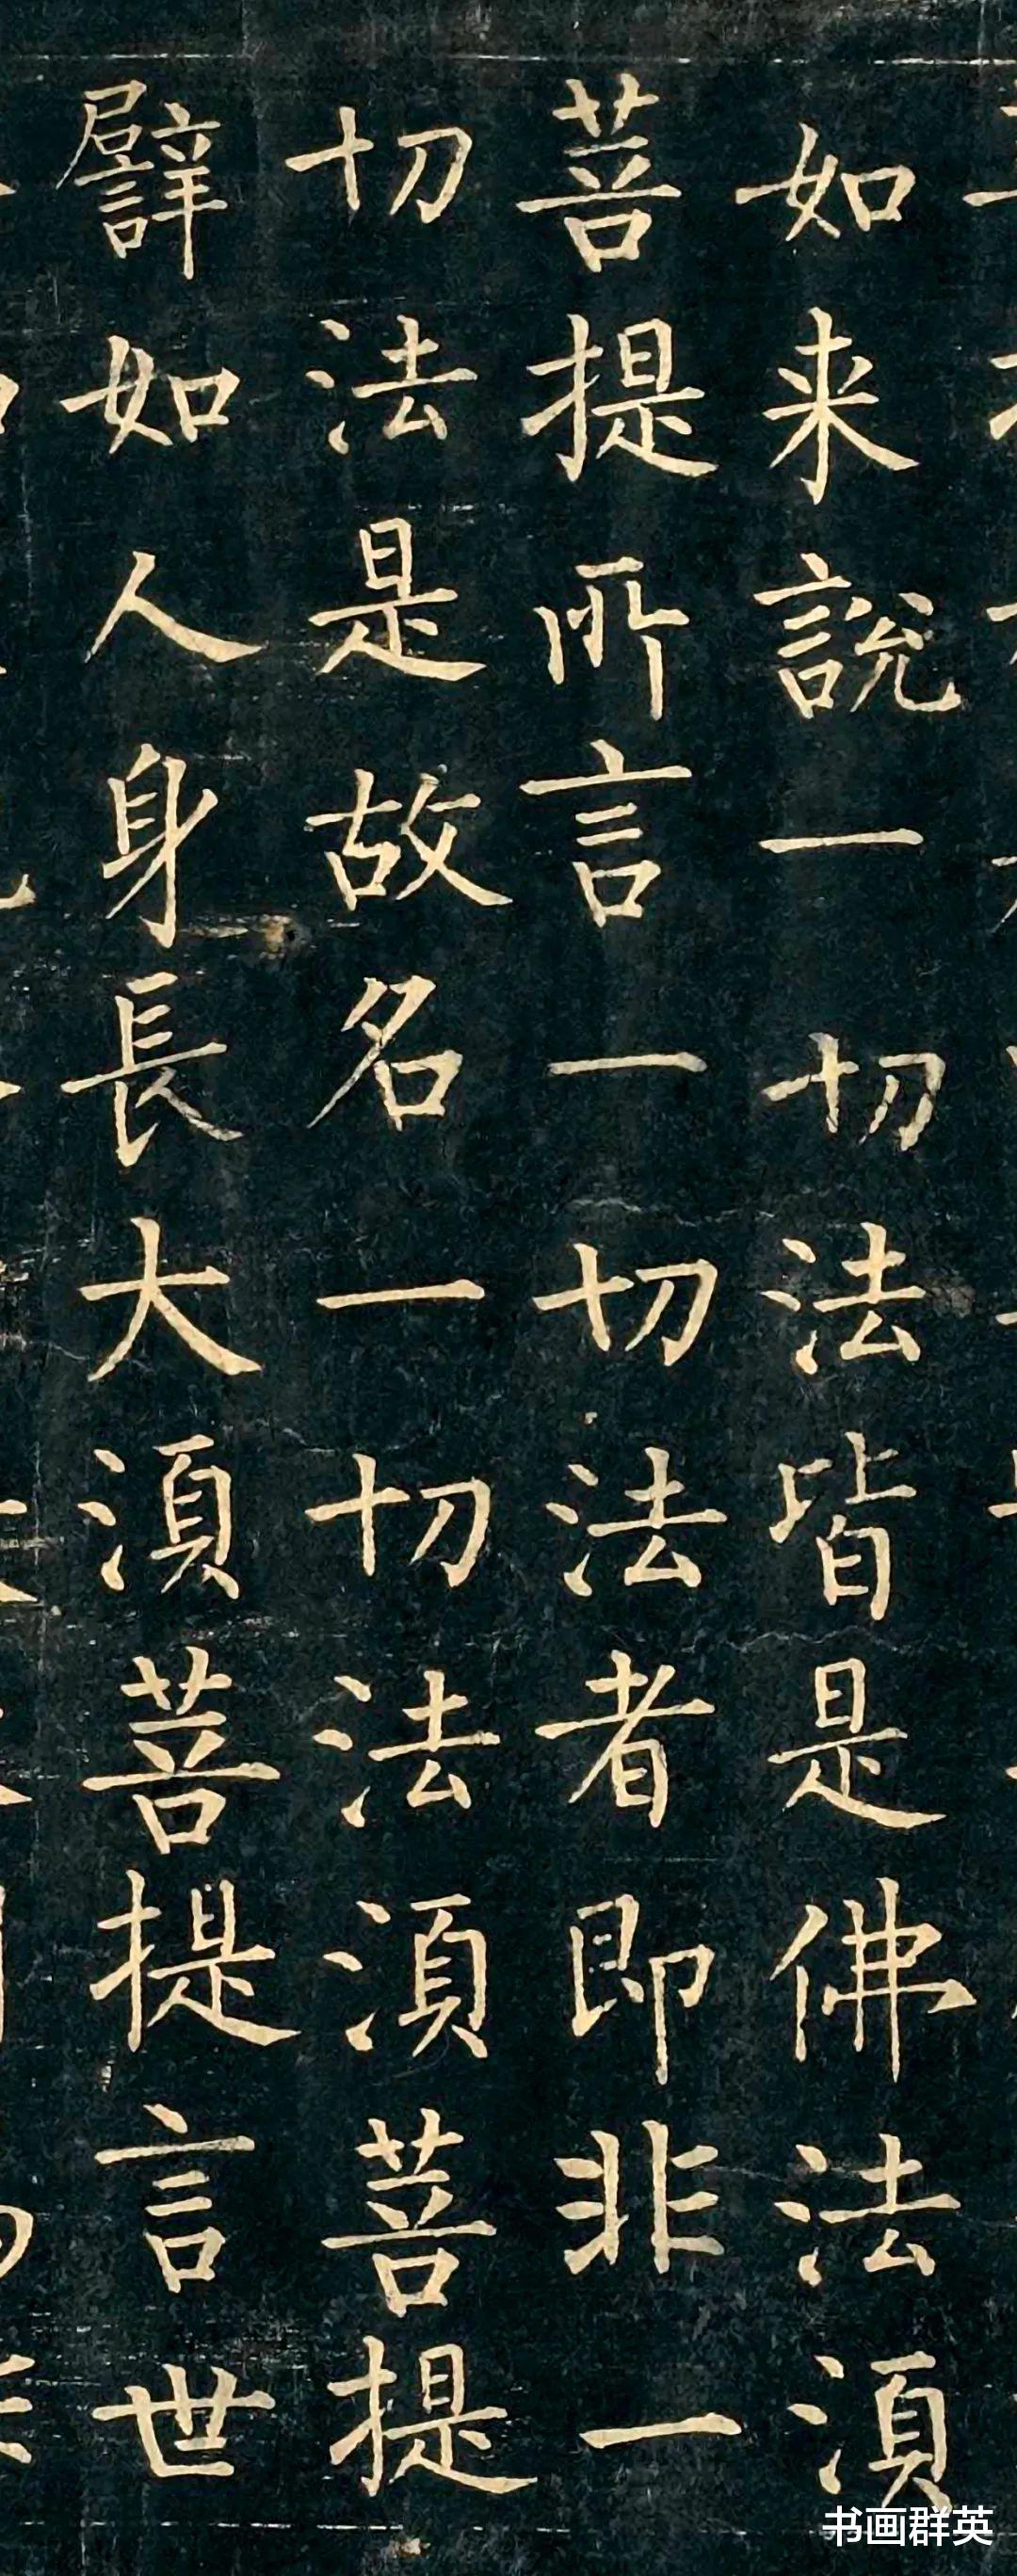 如来說一切法皆是佛法湏
菩提所言一切法者即非一
切法是故名一切法湏菩提
譬如人身長大湏菩提言世
书画群英